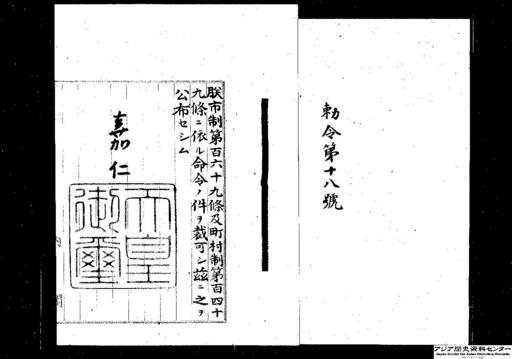 勅令第十八號
朕市制第百六十九條及町村制第百四十
九條ニ依ル命令ノ件ヲ裁可シ茲ニ之ヲ
公布セシム
嘉仁
天皇
御璽
内閣
アジア歴史資料センター
Japan Center for Asian Historical Records